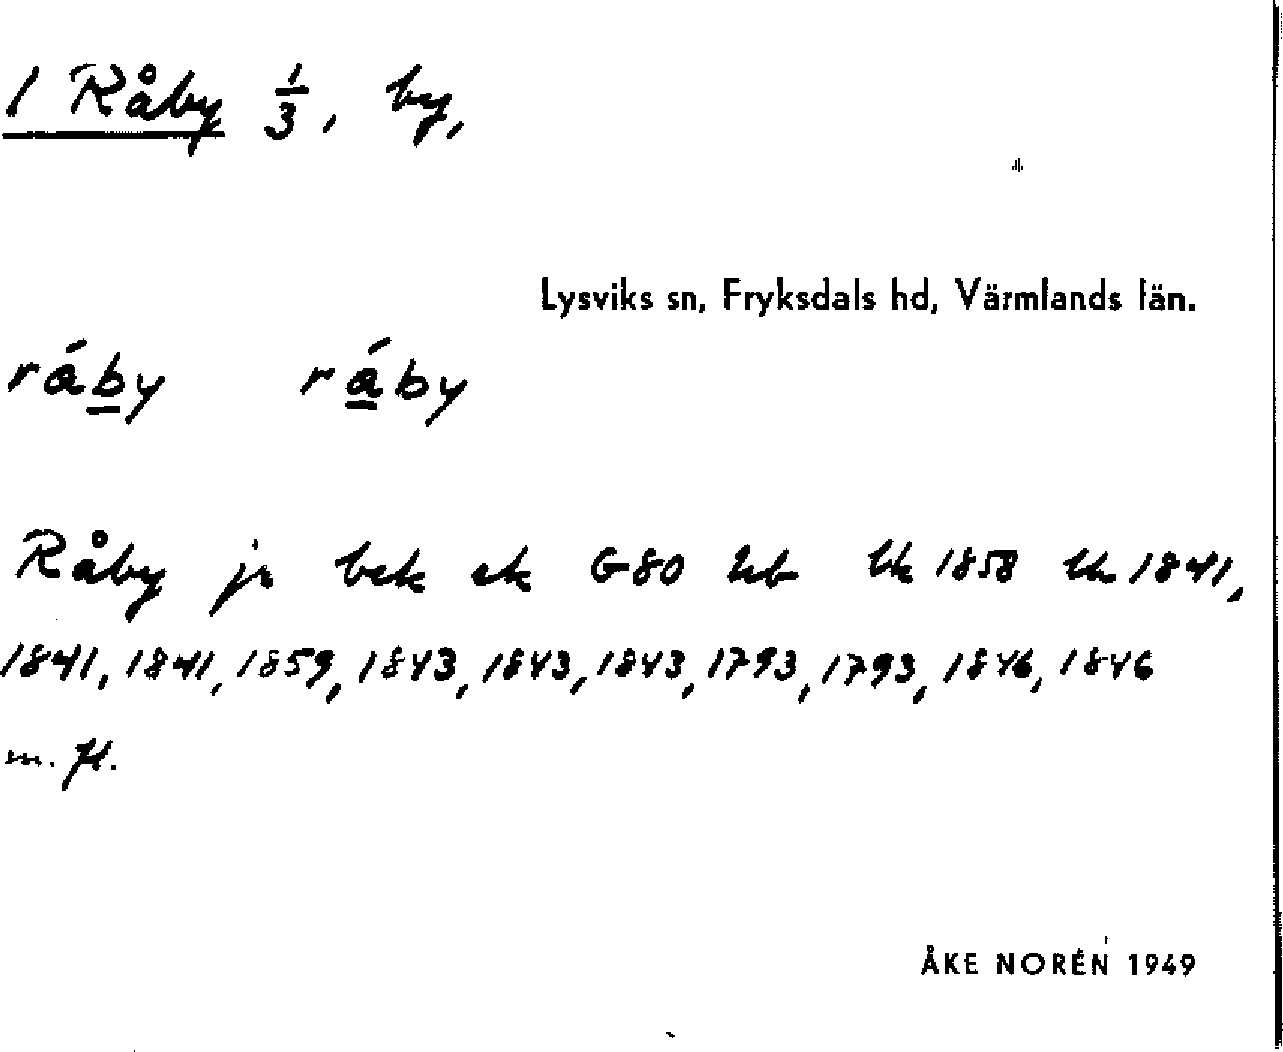 1 Råby 1/3, by,
Lysviks sn, Fryksdals hd, Värmlands län.
råby råby
Råby jr bek ek G80 Lk 1858 1841,
1841, 1841, 1859, 1843, 1843, 1843, 1793, 1793, 1846, 1846
m. fl.
ÅKE NORÉN 1949